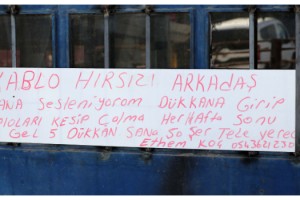 KABLO HIRSIZI ARKADAŞ
SANA Sesleniyorum DÜKKANA Girip
KABLOLARI KESİP Çalma HerHafta Sonu
Gel 5 DÜKKAN SANA 50 Şer TeLe verec
Ethem KOÇ